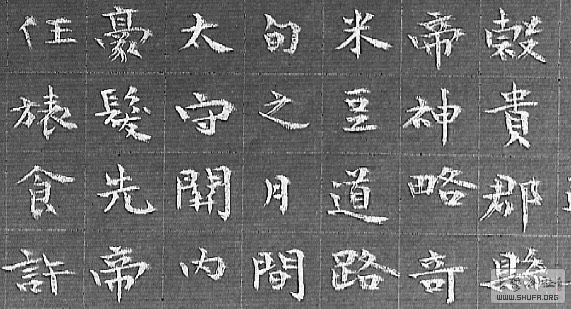 穀貴郡縣
帝神略奇
米豆道路
旬之月間
太守關內
豪髮先帝
任旅食許
WWW.SHUFA.ORG